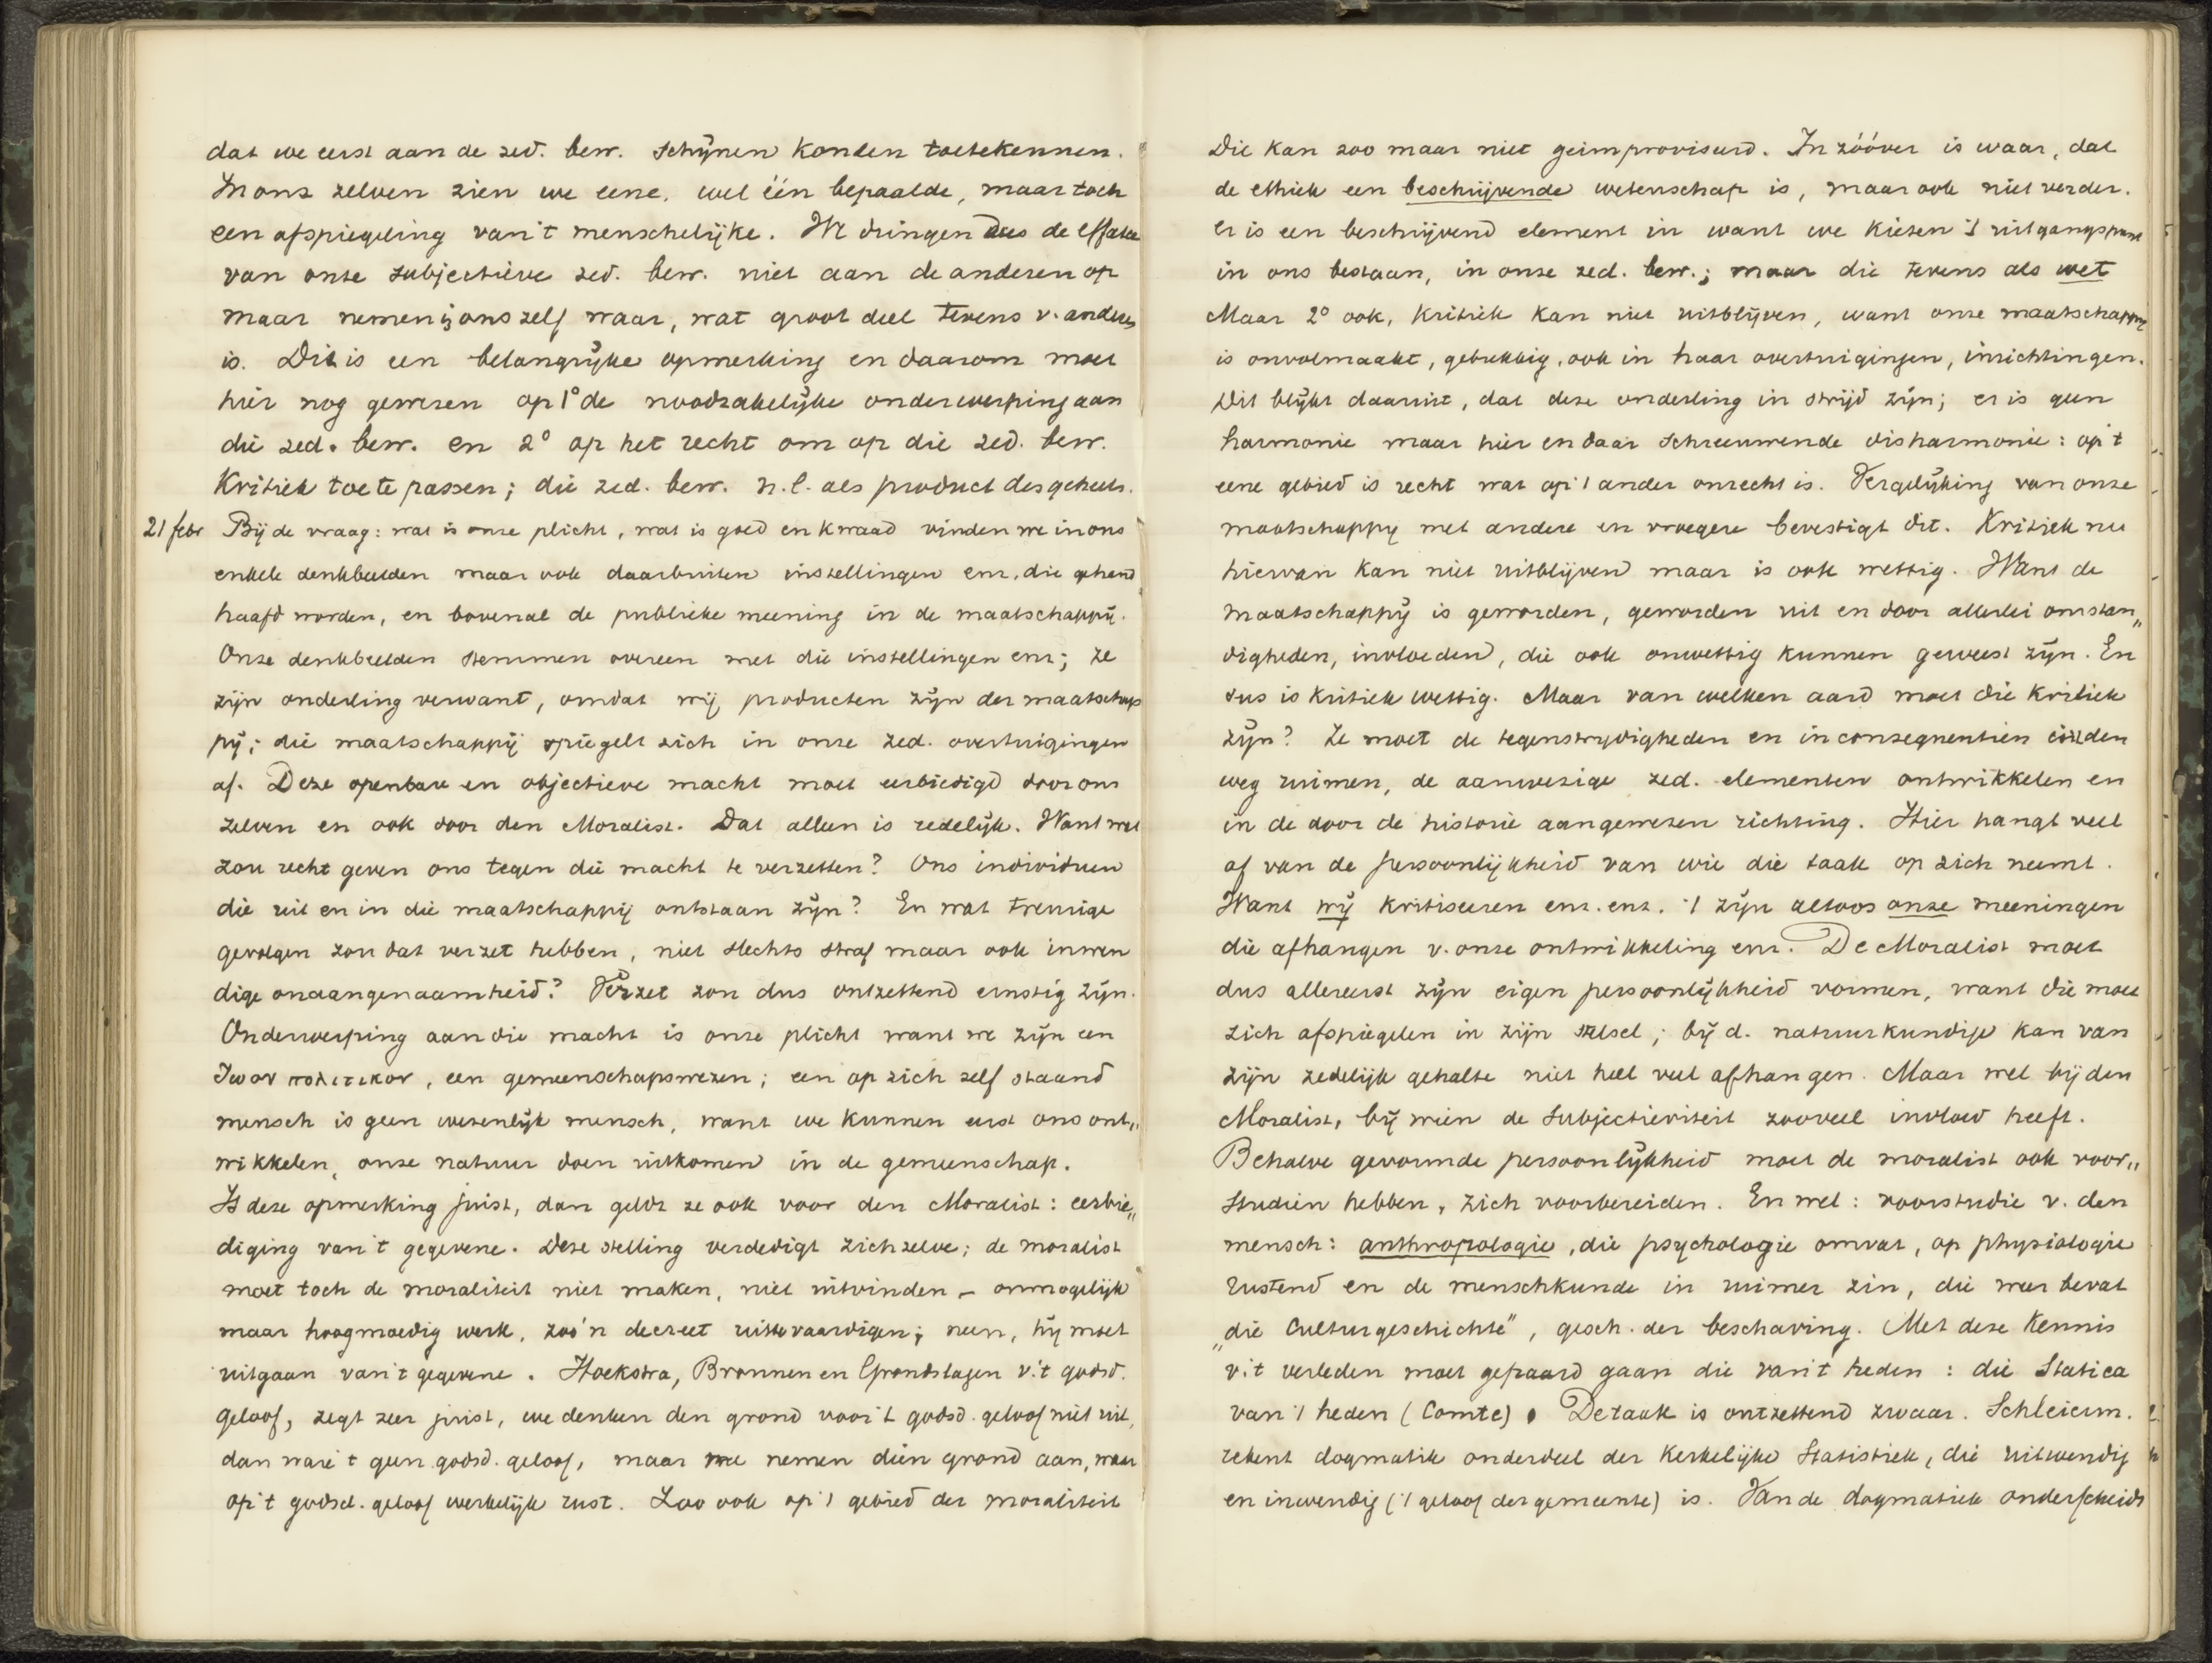 dat we eerst aan de zed. bew. schijnen konden toetekennen.
In ons zelven zien we eene, wel één bepaalde, maar toch
een afspiegeling van 't menschelijke. We dringen dus de effata
van onze subjectieve zed. bew. niet aan de anderen op
maar nemen in ons zelf waar, wat groot deel tevens v. anderen
is. Dit is een belangrijke opmerking en daarom moet
hier nog gewezen op 1° de noodzakelijke onderwerping aan
die zed. bew. en 2° op het recht om op die zed. bew.
Kritiek toe te passen; die zed. bew. n.l. als product des geheels.
21 febr Bij de vraag: wat is onze plicht, wat is goed en kwaad vinden we in ons
enkele denkbeelden maar ook daarbuiten instellingen enz. die gehand
haafd worden, en bovenal de publieke meening in de maatschappij.
Onze denkbeelden stemmen overeen met die instellingen enz; ze
zijn onderling verwant, omdat wij producten zijn der maatschap
pij; die maatschappij spiegelt zich in onze zed. overtuigingen
af. Deze openbare en objectieve macht moet eerbiedigd door ons
zelven en ook door den Moralist. Dat alleen is redelijk. Want wat
zou recht geven ons tegen die macht te verzetten? Ons individuen
die uit en in die maatschappij ontstaan zijn? En wat treurige
gevolgen zou dat verzet hebben, niet slechts straf maar ook inwen
dige onaangenaamheid? Verzet zou dus ontzettend ernstig zijn.
Onderwerping aan die macht is onze plicht want we zijn een
ζωον πολιτικον, een gemeenschapswezen; een op zich zelf staand
mensch is geen wezenlijk mensch, want we kunnen eerst ons ont„
wikkelen, onze natuur doen uitkomen in de gemeenschap.
Is deze opmerking juist, dan geldt ze ook voor den Moralist: eerbie„
diging van 't gegevene. Deze stelling verdedigt zichzelve; de moralist
moet toch de moraliteit niet maken, niet uitvinden – onmogelijk
maar hoogmoedig werk, zoo'n decreet uittevaardigen; neen, hij moet
uitgaan van 't gegevene. Hoekstra, Bronnen en Grondslagen v. 't godsd.
geloof, zegt zeer juist, we denken den grond voor 't godsd. geloof niet uit,
dan ware 't geen godsd. geloof, maar we nemen dien grond aan, waar
op 't godsd. geloof werkelijk rust. Zoo ook op 't gebied der moraliteit
Die kan zoo maar niet geimproviseerd. In zóóver is waar, dat
de ethiek een beschrijvende wetenschap is, maar ook niet verder.
Er is een beschrijvend element in want we kiezen 't uitgangspunt
in ons bestaan, in onze zed. bew.; maar die tevens als wet
Maar 2° ook, kritiek kan niet uitblijven, want onze maatschappij
is onvolmaakt, gebrekkig, ook in haar overtuigingen, inrichtingen.
Dit blijkt daaruit, dat deze onderling in strijd zijn; er is geen
harmonie maar hier en daar schreeuwende disharmonie: op 't
eene gebied is recht wat op 't ander onrecht is. Vergelijking van onze
maatschappij met andere en vroegere bevestigt dit. Kritiek nu
hiervan kan niet uitblijven maar is ook wettig. Want de
maatschappij is geworden, geworden uit en door allerlei omstan„
digheden, invloeden, die ook onwettig kunnen geweest zijn. En
dus is kritiek wettig. Maar van welken aard moet die kritiek
zijn? Ze moet de tegenstrijdigheden en inconsequentien
weg ruimen, de aanwezige zed. elementen ontwikkelen en
in de door de historie aangewezen richting. Hier hangt veel
af van de persoonlijkheid van wie die taak op zich neemt.
Want wij kritiseeren enz. enz. 't zijn altoos onze meeningen
die afhangen v. onze ontwikkeling enz. De Moralist moet
dus allereerst zijn eigen persoonlijkheid vormen, want die moet
zich afspiegelen in zijn stelsel; bij d. natuurkundige kan van
zijn zedelijk gehalte niet heel veel afhangen. Maar wel bij den
Moralist, bij wien de subjectieviteit zooveel invloed heeft.
Behalve gevormde persoonlijkheid moet de moralist ook voor„
studien hebben, zich voorbereiden. En wel: voorstudie v. den
mensch: anthropologie, die psychologie omvat, op physiologie
rustend en de menschkunde in ruimer zin, die weer bevat
„die Culturgeschichte", gesch. der beschaving. Met deze kennis
v. 't verleden moet gepaard gaan die van 't heden: die Statica
van 't heden (Comte). De taak is ontzettend zwaar. Schleierm.
rekent dogmatik onderdeel der Kerkelijke Statistiek, die uitwendig
en inwendig ('t geloof der gemeente) is. Van de dogmatiek onderscheidt